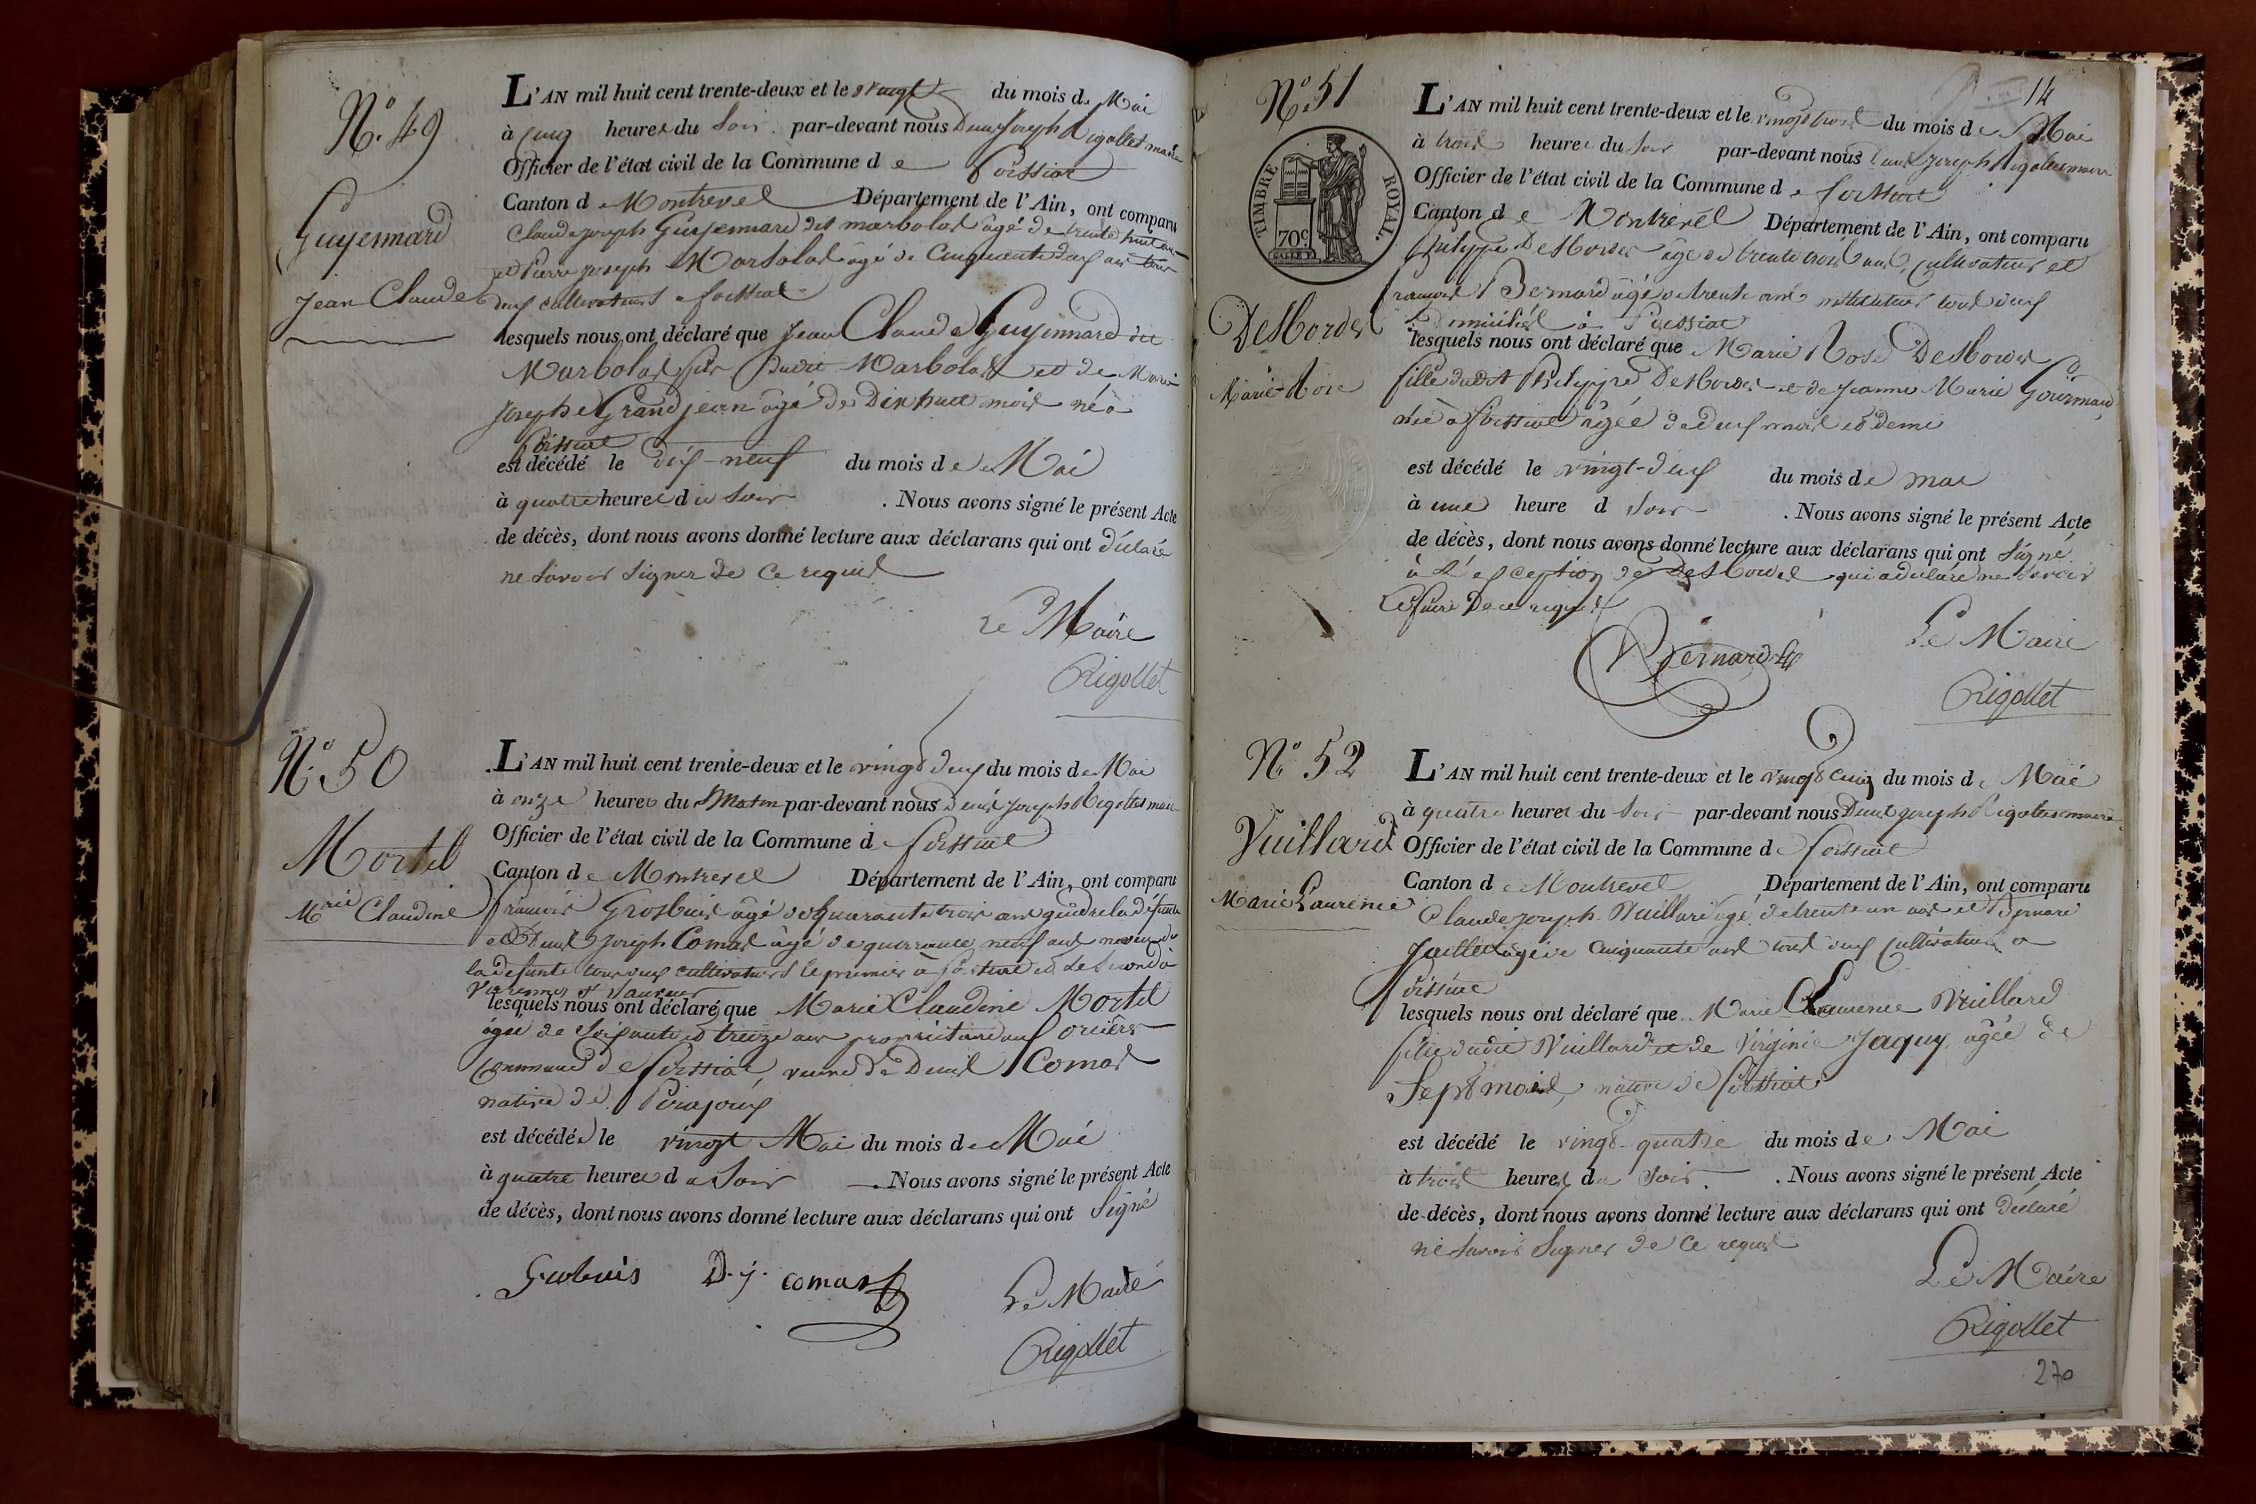 N° 49
Guyennard
Jean Claude
L'AN mil huit cent trente-deux et le vingt du mois de Mai
à cinq heures du soir par-devant nous Denis Joseph Rigollet maire
Officier de l'état civil de la Commune de Foissiat
Canton de Montrevel Département de l'Ain, ont comparu
Claude Joseph Guyennard dit marbolas âgé de trente huit ans
et Pierre Joseph Marbolas âgé de Cinquante deux ans tous
deux cultivateurs à foissiat
lesquels nous ont déclaré que Jean Claude Guyennard dit
Marbolas fils dudit Marbolas et de Marie
Josephe Grandjean âgé de Dix huit mois né à
foissiat
est décédé le dix-neuf du mois de Mai
à quatre heures du Soir . Nous avons signé le présent Acte
de décès, dont nous avons donné lecture aux déclarans qui ont déclaré
ne savoir signer de ce requis
Le Maire
Rigollet
N° 50
Mortel
Mrie Claudine
L'AN mil huit cent trente-deux et le vingt deux du mois de Mai
à onze heures du Matin par-devant nous Denis Joseph Rigollet maire
Officier de l'état civil de la Commune de foissiat
Canton de Montrevel Département de l'Ain, ont comparu
françois Grosbuis âgé de quarante trois ans gendre la défunte
et Denis Joseph Comas âgé de quarante neuf ans neveu de
la defunte tous deux cultivateurs le premier à foissiat et le second à
lesquels nous ont déclaré que Marie Claudine Mortel
âgée de soixante et treize ans propriétaire aux
Commune de foissiat, veuve de Denis Comas
native de Pirajoux
est décédée le vingt Mai du mois de Mai
à quatre heures du Soir . Nous avons signé le présent Acte
de décès, dont nous avons donné lecture aux déclarans qui ont Signé
D. j. comas
Le Maire
Rigollet
14
N° 51
TIMBRE ROYAL.
70c
Desbordes
Marie-Rose
L'AN mil huit cent trente-deux et le vingt trois du mois de Mai
à trois heures du soir par-devant nous Denis Joseph Rigollet maire
Officier de l'état civil de la Commune de foissiat
Canton de Montrevel Département de l'Ain, ont comparu
Philippe Desbordes âgé de trente trois ans, cultivateur et
françois Bernard âgé de trente ans instituteur tous deux
domiciliés à Foissiat
lesquels nous ont déclaré que Marie Rose Desbordes
fille dudit Philippe Desbordes et de Jeanne Marie
née à foissiat âgée de deux mois et demi
est décédé le vingt-deux du mois de mai
à une heure d soir . Nous avons signé le présent Acte
de décès, dont nous avons donné lecture aux déclarans qui ont signé
à l'exception de Desbordes qui a déclaré ne savoir
le faire de ce requis
Bernard
Le Maire
Rigollet
N° 52
Vuillard
Marie Laurence
L'AN mil huit cent trente-deux et le vingt cinq du mois de Mai
à quatre heures du soir par-devant nous Denis Joseph Rigollet maire
Officier de l'état civil de la Commune de foissiat
Canton de Montrevel Département de l'Ain, ont comparu
Claude Joseph Vuillard âgé de trente un ans et Bernard
âgé de cinquante ans tous deux cultivateurs à
foissiat
lesquels nous ont déclaré que Marie Laurence Vuillard
fille dudit Vuillard et de Virginie Jaquy âgée de
Sept mois, native de foissiat
est décédé le vingt-quatre du mois de Mai
à trois heures du Soir . Nous avons signé le présent Acte
de décès, dont nous avons donné lecture aux déclarans qui ont déclaré
ne savoir Signer de ce requis
Le Maire
Rigollet
270